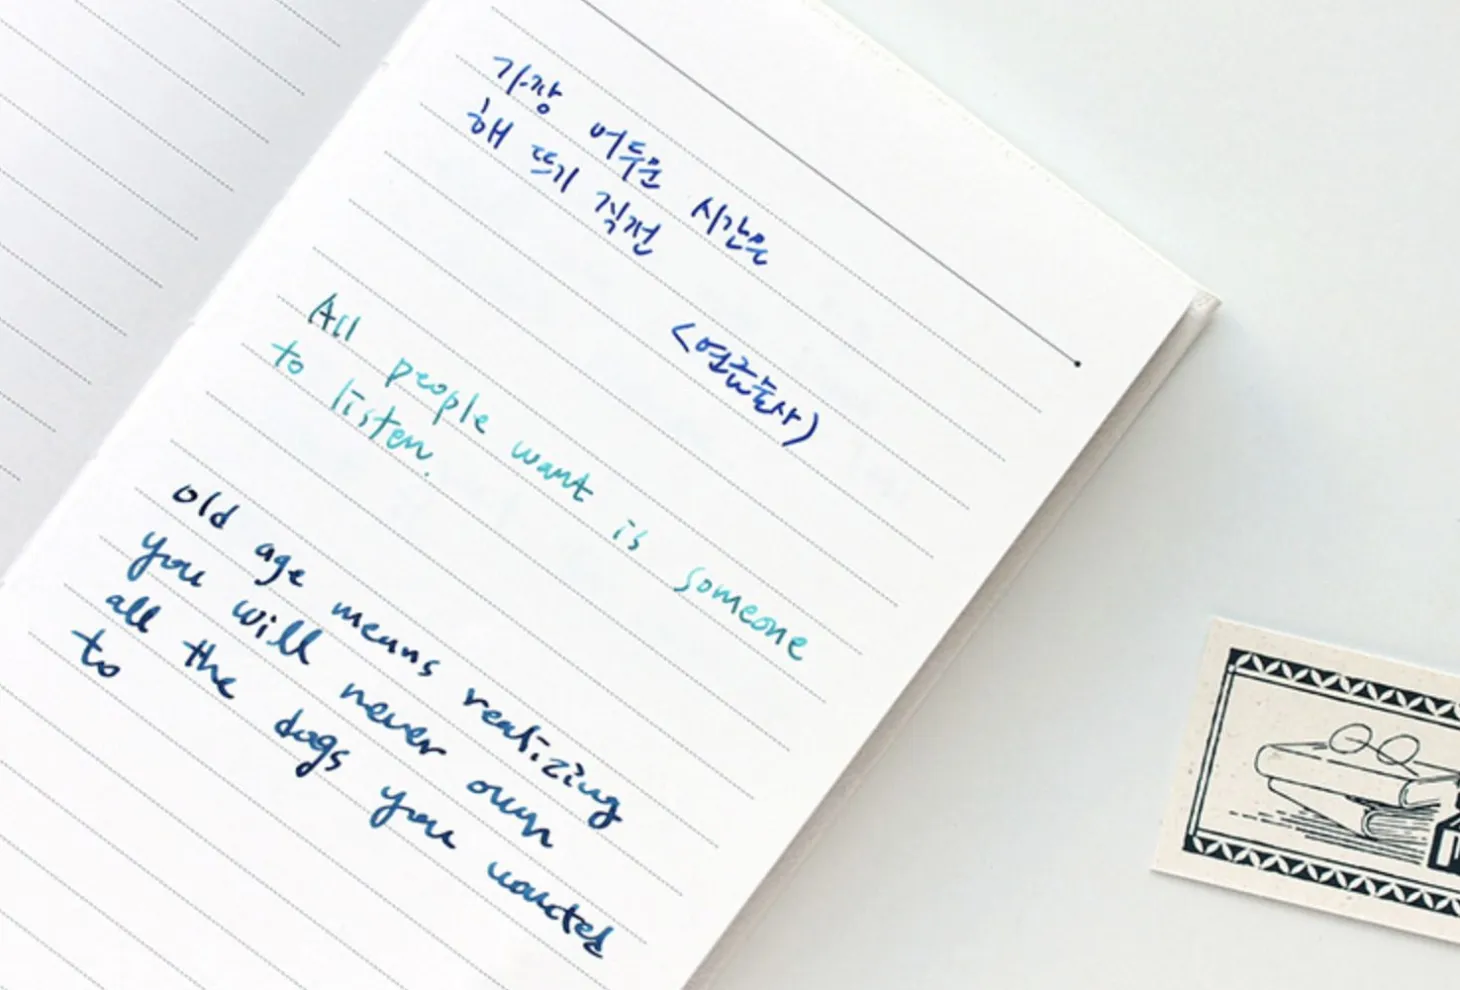 가장 어두운 시간은
해 뜨기 직전
<연금술사>
All people want is someone
to listen.
old age means realizing
you will never own
all the dogs you wanted
to